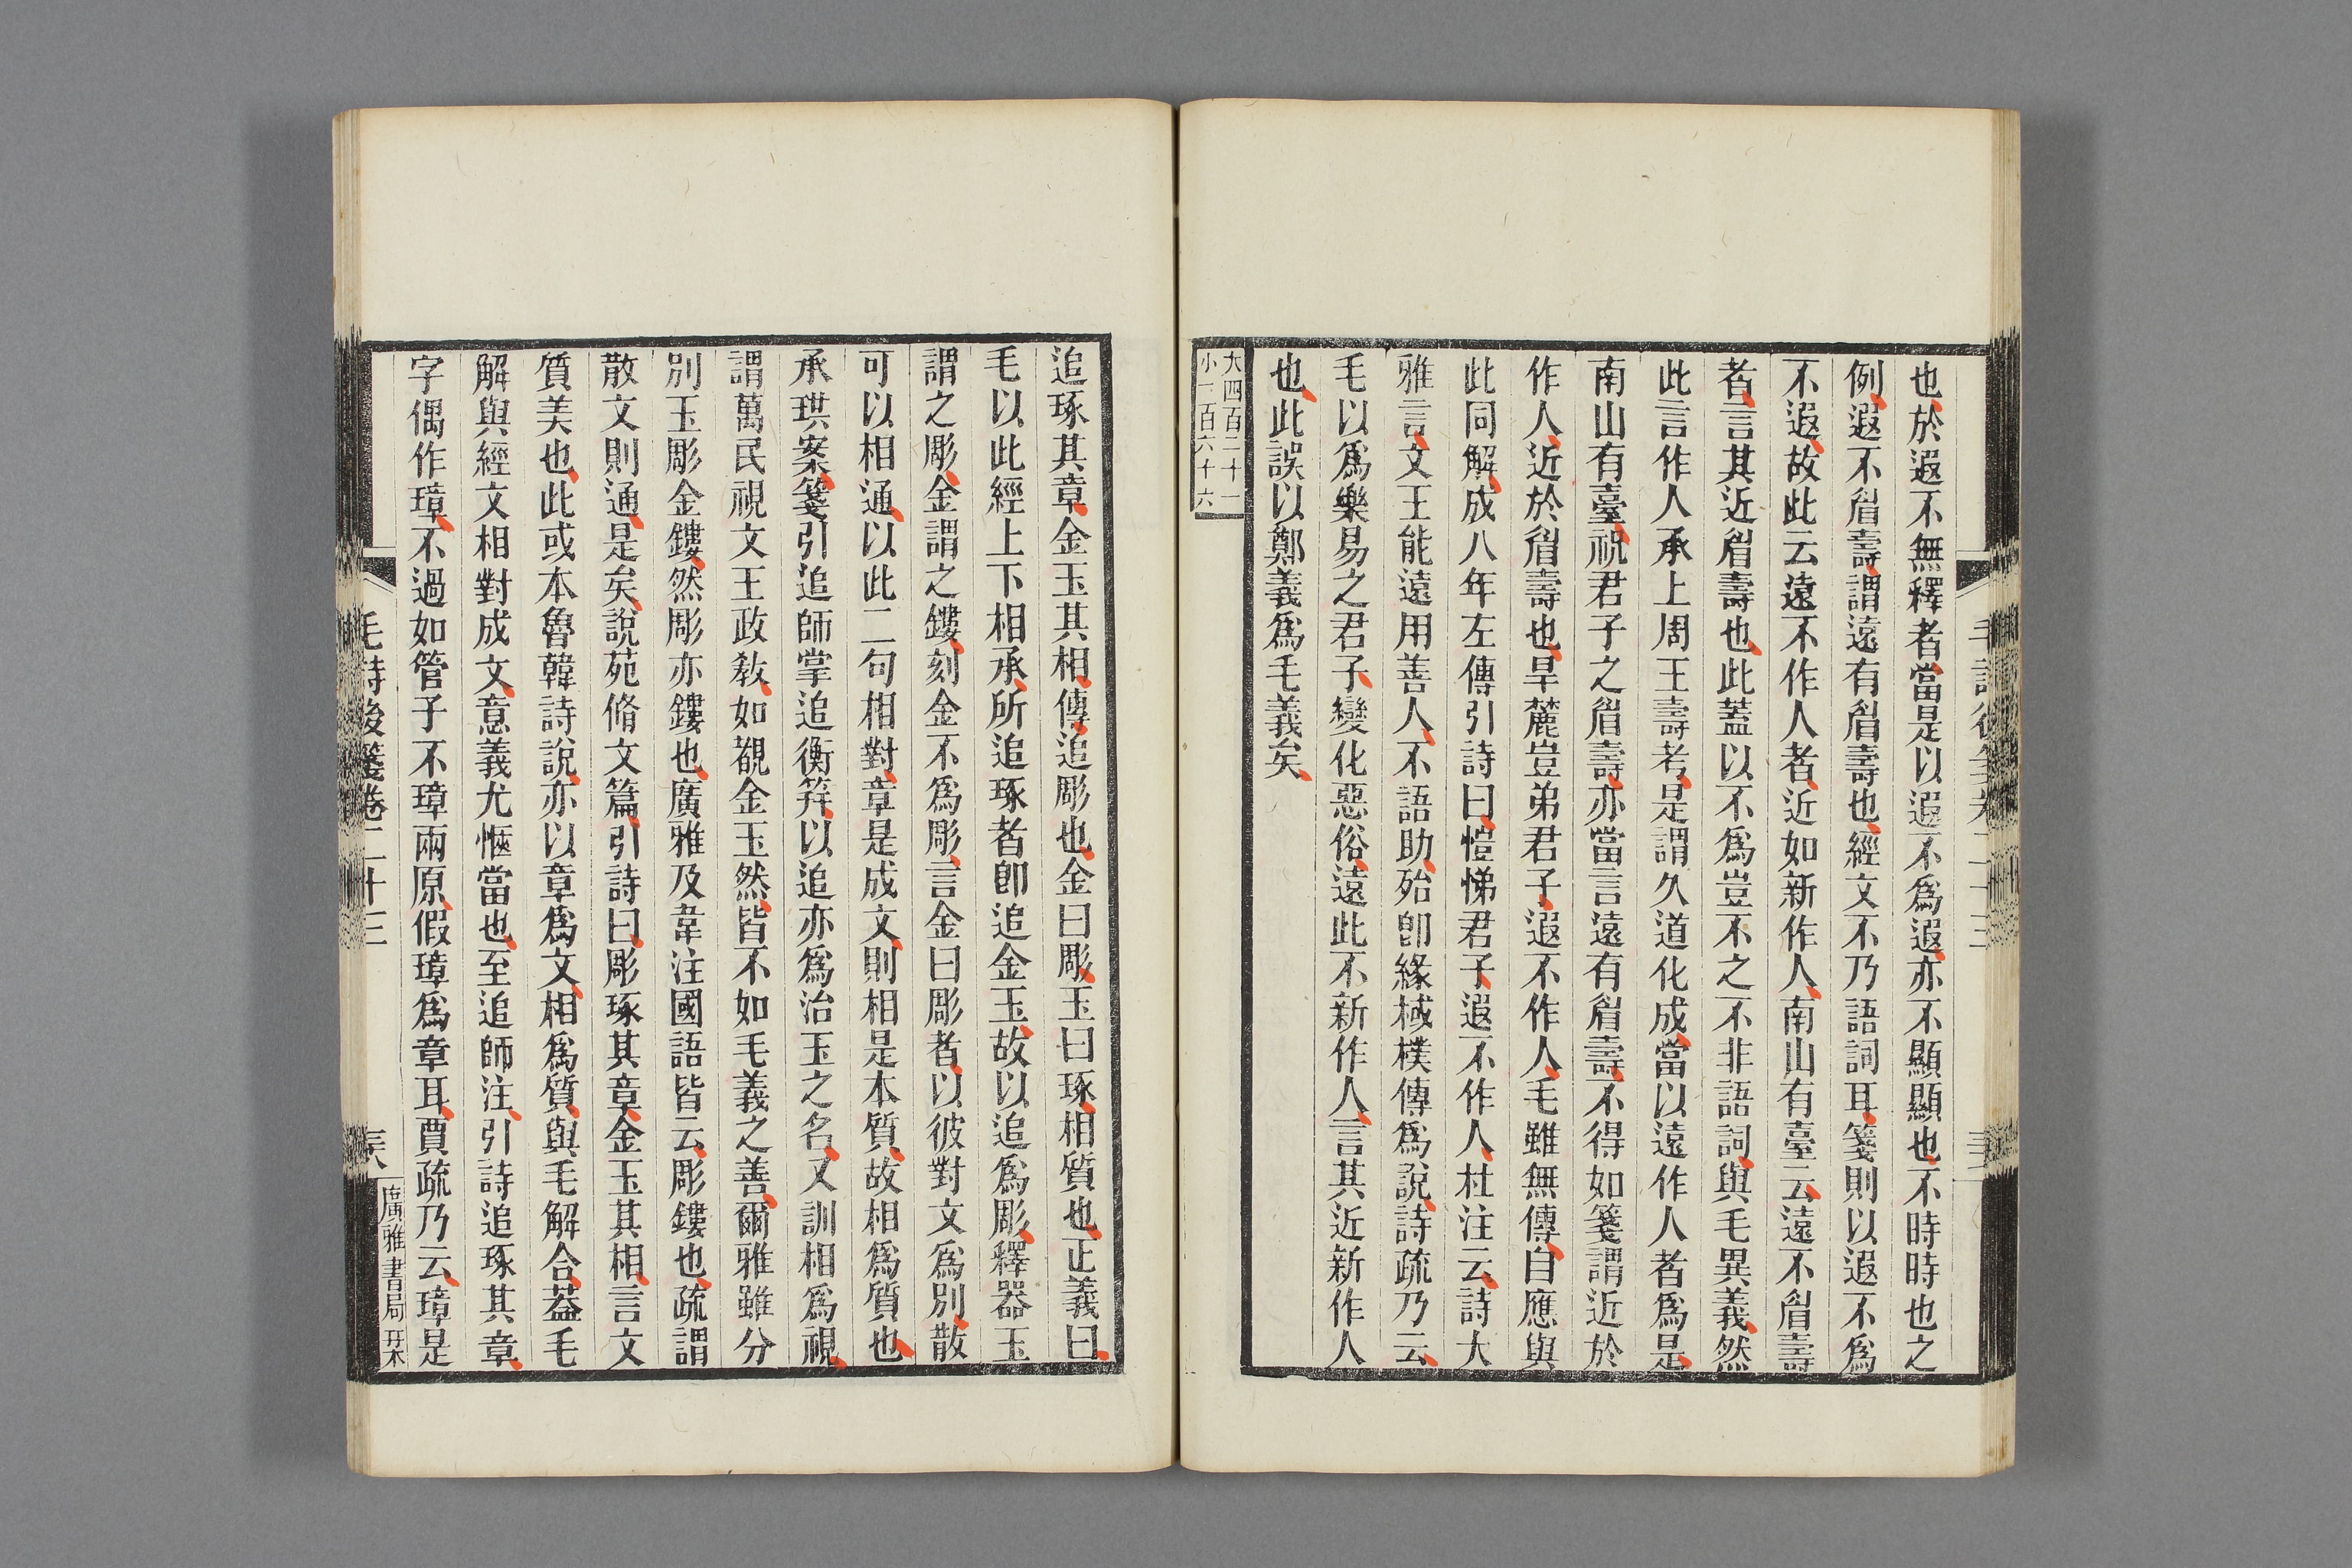 也於遐不無釋者當是以遐不為遐亦不顯顯也不時時也之
例遐不眉壽謂遠有眉壽也經文不乃語詞耳箋則以遐不為
不遐故此云遠不作人者近如新作人南山有臺云遠不眉壽
者言其近眉壽也此蓋以不為豈不之不非語詞與毛異義然
此言作人承上周王壽考是謂久道化成當以遠作人者為是
南山有臺祝君子之眉壽亦當言遠有眉壽不得如箋謂近於
作人近於眉壽也旱麓豈弟君子遐不作人毛雖無傳自應與
此同解成八年左傳引詩曰愷悌君子遐不作人杜注云詩大
雅言文王能遠用善人不語助殆卽緣棫樸傳為說詩疏乃云
毛以為樂易之君子變化惡俗遠此不新作人言其近新作人
也此誤以鄭義為毛義矣
大四百二十一
小一百六十六
追琢其章金玉其相傳追彫也金曰彫玉曰琢相質也正義曰
毛以此經上下相承所追琢者卽追金玉故以追為彫釋器玉
謂之彫金謂之鏤刻金不為彫言金曰彫者以彼對文為別散
可以相通以此二句相對章是成文則相是本質故相為質也
承珙案箋引追師掌追衡笄以追亦為治玉之名又訓相為視
謂萬民視文王政教如覩金玉然皆不如毛義之善爾雅雖分
別玉彫金鏤然彫亦鏤也廣雅及韋注國語皆云彫鏤也疏謂
散文則通是矣說苑脩文篇引詩曰彫琢其章金玉其相言文
質美也此或本魯韓詩說亦以章為文相為質與毛解合葢毛
解與經文相對成文意義尤愜當也至追師注引詩追琢其章
字偶作璋不過如管子不璋兩原假璋為章耳賈疏乃云璋是
毛詩後箋卷二十三
廣雅書局栞